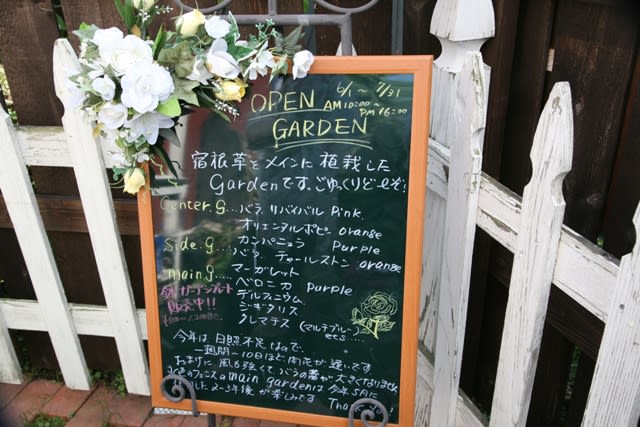 OPEN 6/1 ~ 7/31
GARDEN AM10:00 ~ PM16:00
宿根草をメインに植栽した
Gardenです。ごゆっくりどーぞ!
Center.G...バラ リバイバル Pink
オリエンタルポピー orange
Side.G...カンパニュラ Purple
バラ チャールストン orange
main.G.....マーガレット
ベロニカ purple
デルフィニウム
ジギタリス
クレマチス (マルチブルー)
etc.....
ガーデンプレート
販売中!!
今年は日照不足なので、
一週間~10日ほど開花が遅いです
おまけに風も強くてバラの蕾が大きくなりません
main gardenは今年5月に
2~3年後が楽しみです Thank you!